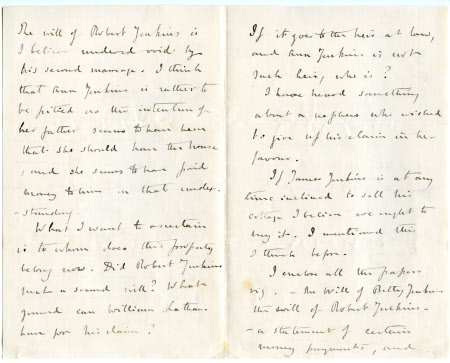 The will of Robert Jenkins is
I believe rendered void by
his second marriage. I think
that Ann Jenkins is rather to
be pitied as the intention of
her father seems to have been
that she should have the house
, and she seems to have paid
money to him on that under-
-standing.
What I want to ascertain
is to whom does this property
belong now. Did Robert Jenkins
make a second will? What
ground can William
have for his claim?
If it goes to the heir at law,
and Ann Jenkins is not
such heir, who is?
I have heard something
about a nephew who wished
to give up his claim in her
favour.
If James Jenkins is at any
time inclined to sell his
cottage I believe we ought to
buy it. I mentioned this
I think before.
I enclose all the papers
viz. - the will of Betty Jenkins
the will of Robert Jenkins -
- a statement of certain
money payments, and